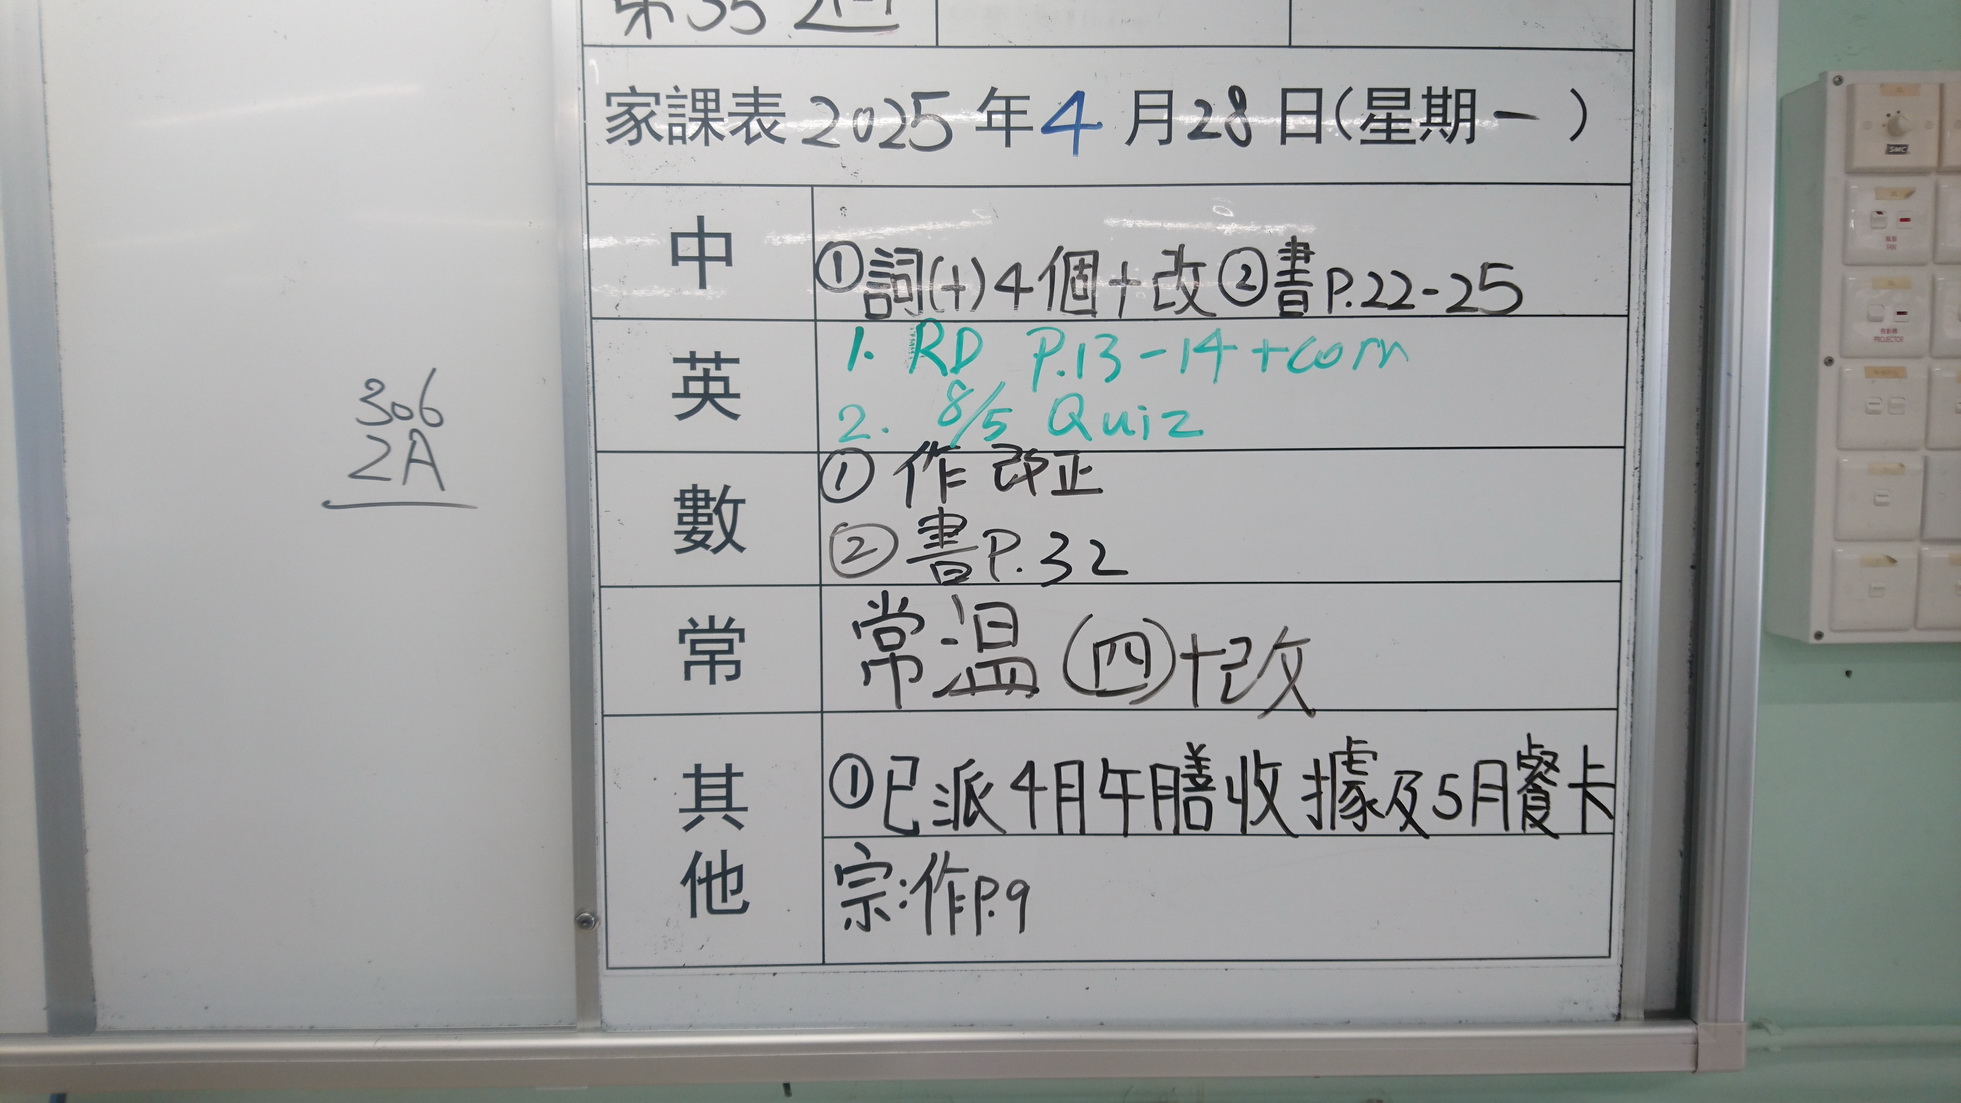 第35週
家課表2025年4月28日(星期一)
306
2A
中
①詞(十)4個+改②書P.22-25
英
1. RD P.13-14+corr
2. 8/5 Quiz
數
①作改正
②書P.32
常
常溫(四)+改
其他
①已派4月午膳收據及5月餐卡
宗:作P.9
SMC
PROJECTOR